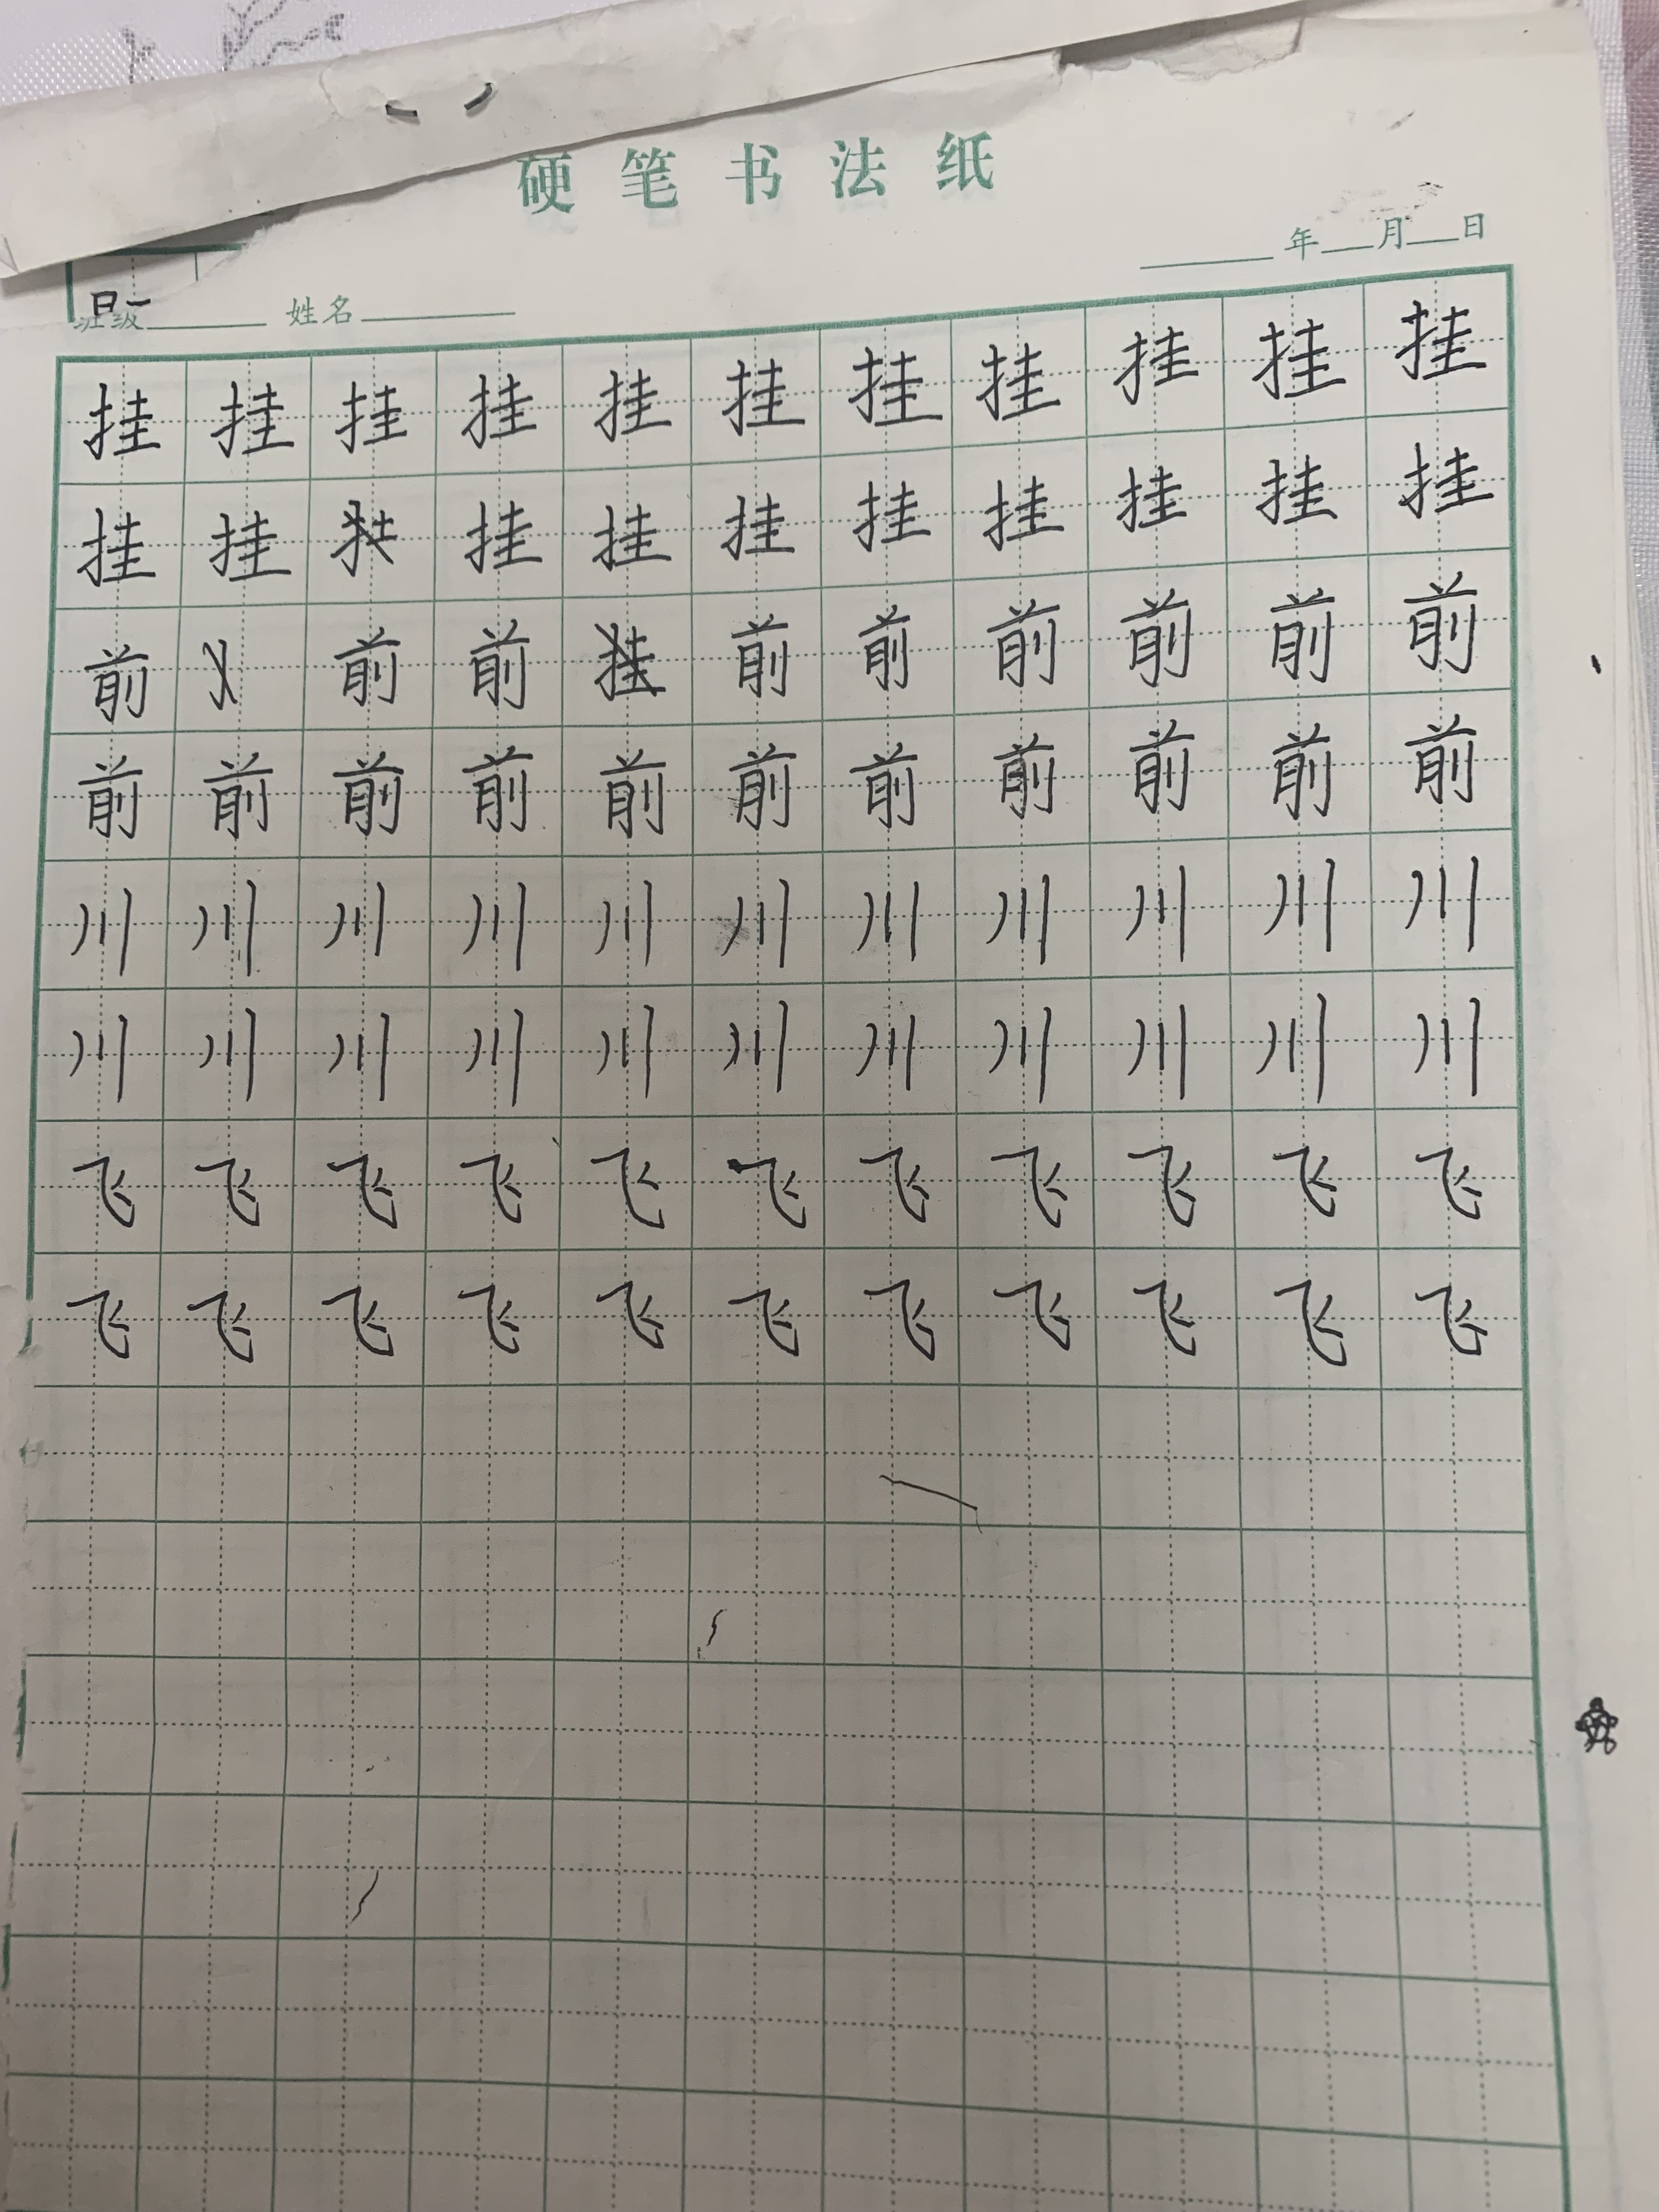 硬笔书法纸
年 月 日
姓名
挂挂挂挂挂挂挂挂挂挂挂
挂挂挂挂挂挂挂挂挂挂
前前前挂前前前前前前
前前前前前前前前前前前
川川川川川川川川川川川
川川川川川川川川川川川
飞飞飞飞飞飞飞飞飞飞飞
飞飞飞飞飞飞飞飞飞飞飞